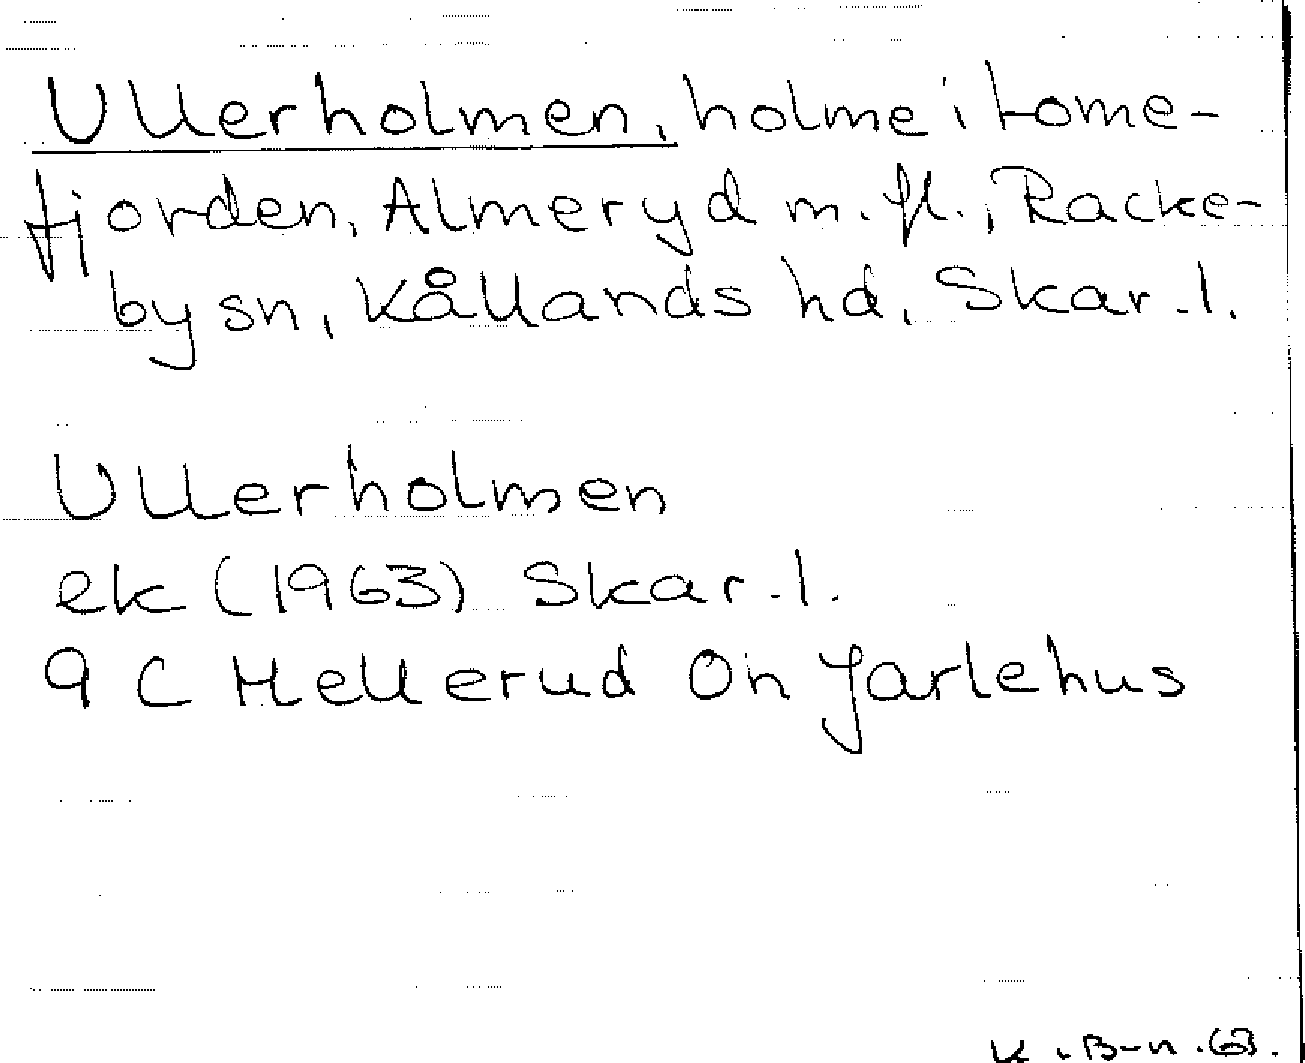 Ullerholmen, holme i Lome-
fjorden, Almeryd m.fl., Racke-
by sn, Kållands hd, Skar.l.
Ullerholmen
ek (1963) Skar.l.
9 C Mellerud Ön Jarlehus
K.B-n.63.